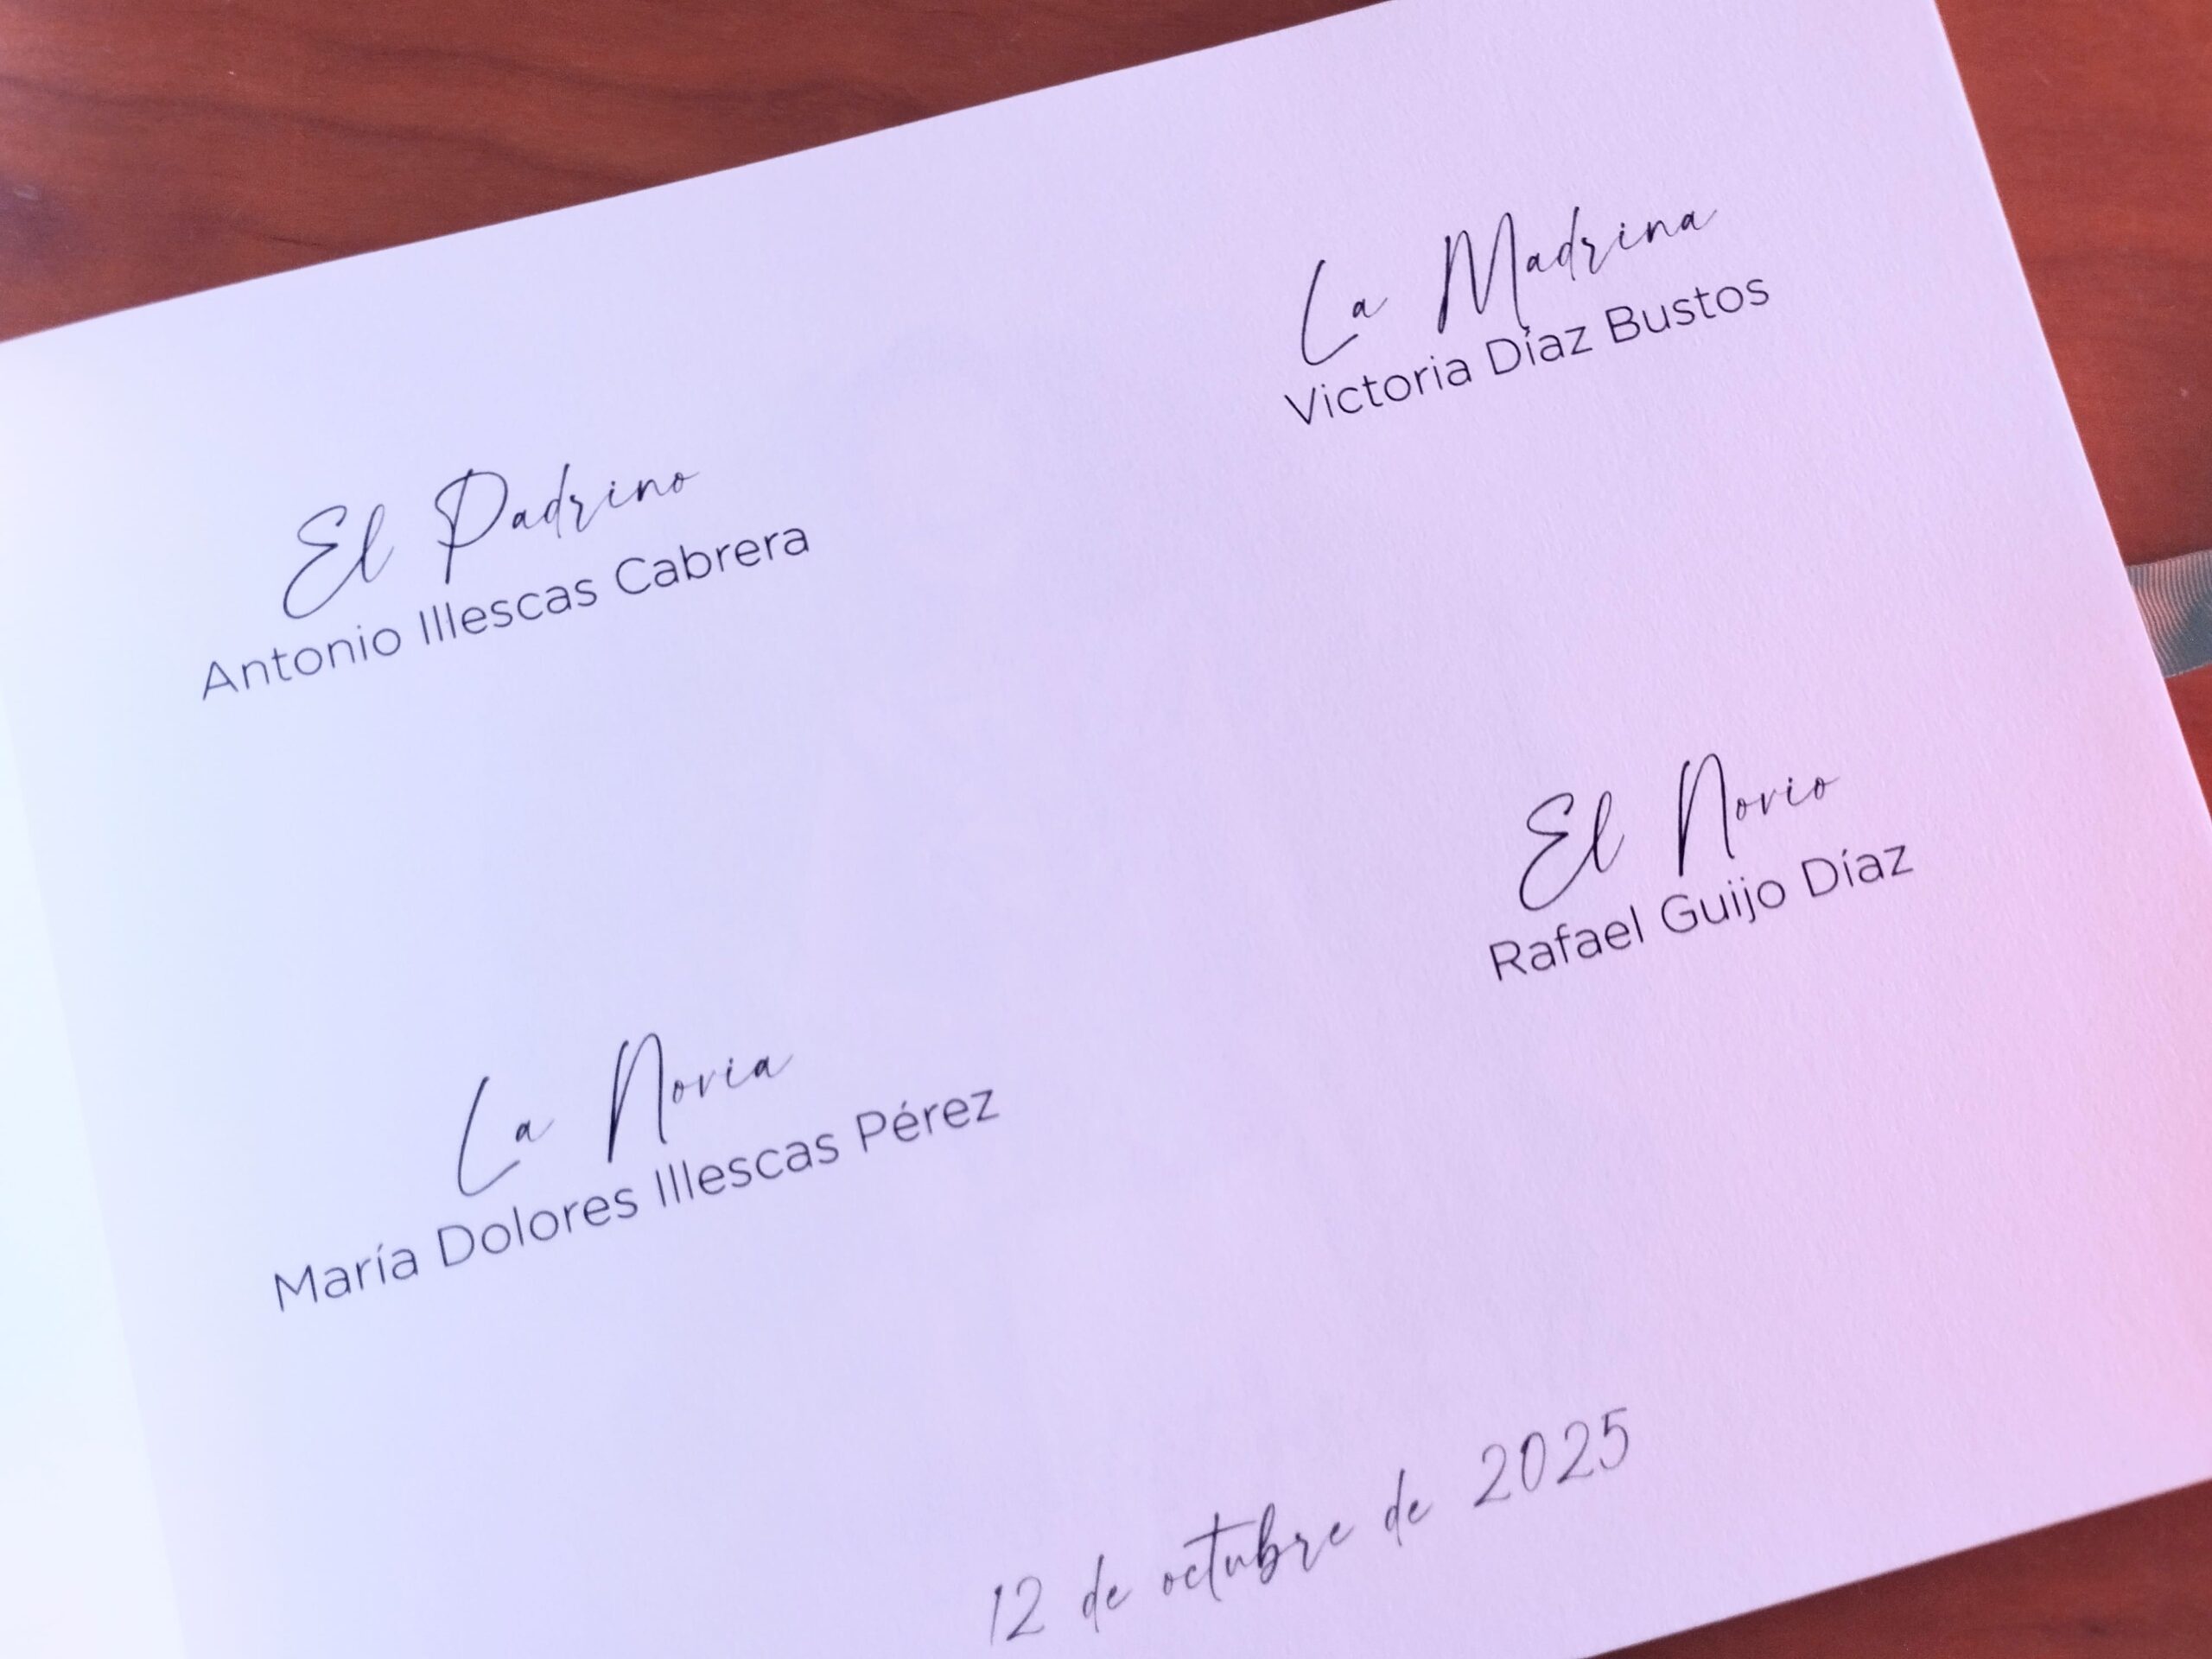 El Padrino
Antonio Illescas Cabrera
La Madrina
Victoria Díaz Bustos
La Novia
María Dolores Illescas Pérez
El Novio
Rafael Guijo Díaz
12 de octubre de 2025